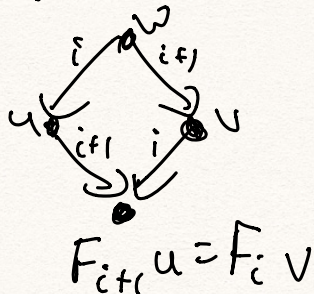 w
i i+1
u v
i+1 i
F_{i+1} u = F_i v